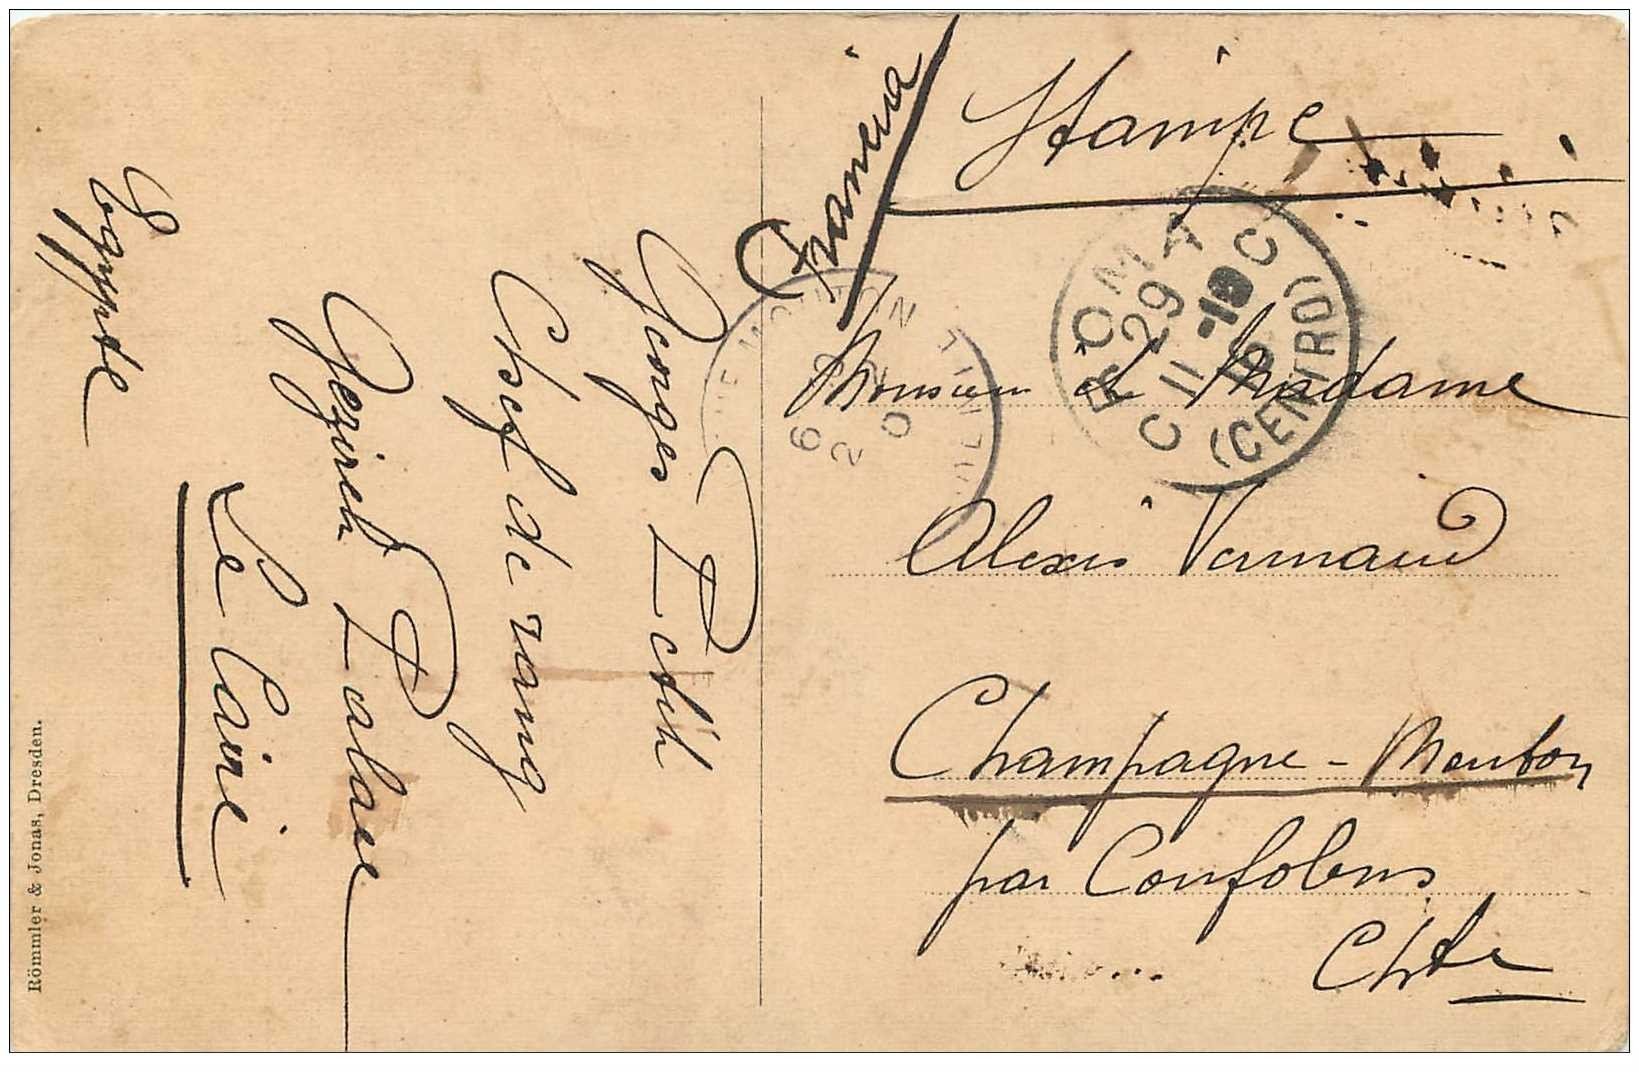 Francia
Stampe
Monsieur et Madame
Alexis Vernaud
Champagne-Mouton
par Confolens
Chte
Georges Petit
Chef de rang
Gezireh Palace
Le Caire
Egypte
ROMA
29
11-10
C C
(CENTRO)
Römmler & Jonas, Dresden.